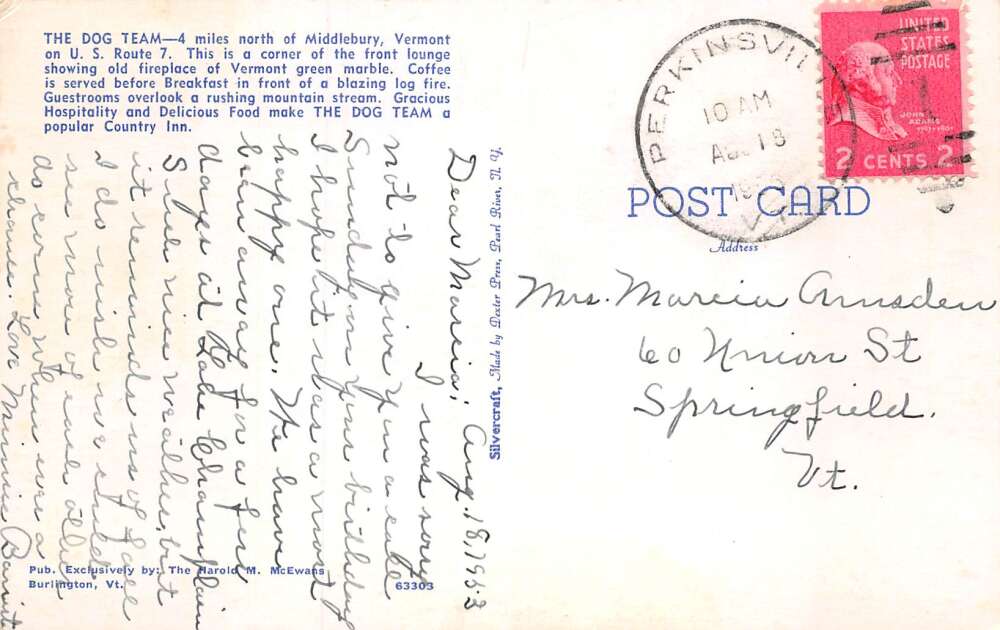 THE DOG TEAM—4 miles north of Middlebury, Vermont
on U. S. Route 7. This is a corner of the front lounge
showing old fireplace of Vermont green marble. Coffee
is served before Breakfast in front of a blazing log fire.
Guestrooms overlook a rushing mountain stream. Gracious
Hospitality and Delicious Food make THE DOG TEAM a
popular Country Inn.
Dear Marcia; Aug. 18, 1953
I was sorry
not to give you a call
Sunday on your birthday
I hope it was a most
happy one. We have
been away for a few
days at Lake Champlain
Such nice weather, but
it reminds us of fall
I do wish we could
see more of each other
do come when ever a
chance. Love Minnie
Pub. Exclusively by: The Harold M. McEwans
Burlington, Vt.
63303
Silvercraft, Made by Dexter Press, Pearl River, N. Y.
PERKINSVILLE
10 AM
AUG 18
19
VT
UNITED
STATES
POSTAGE
JOHN
ADAMS
1797-1801
2 CENTS 2
POST CARD
Address
Mrs. Marcia Amsden
60 Union St
Springfield.
Vt.